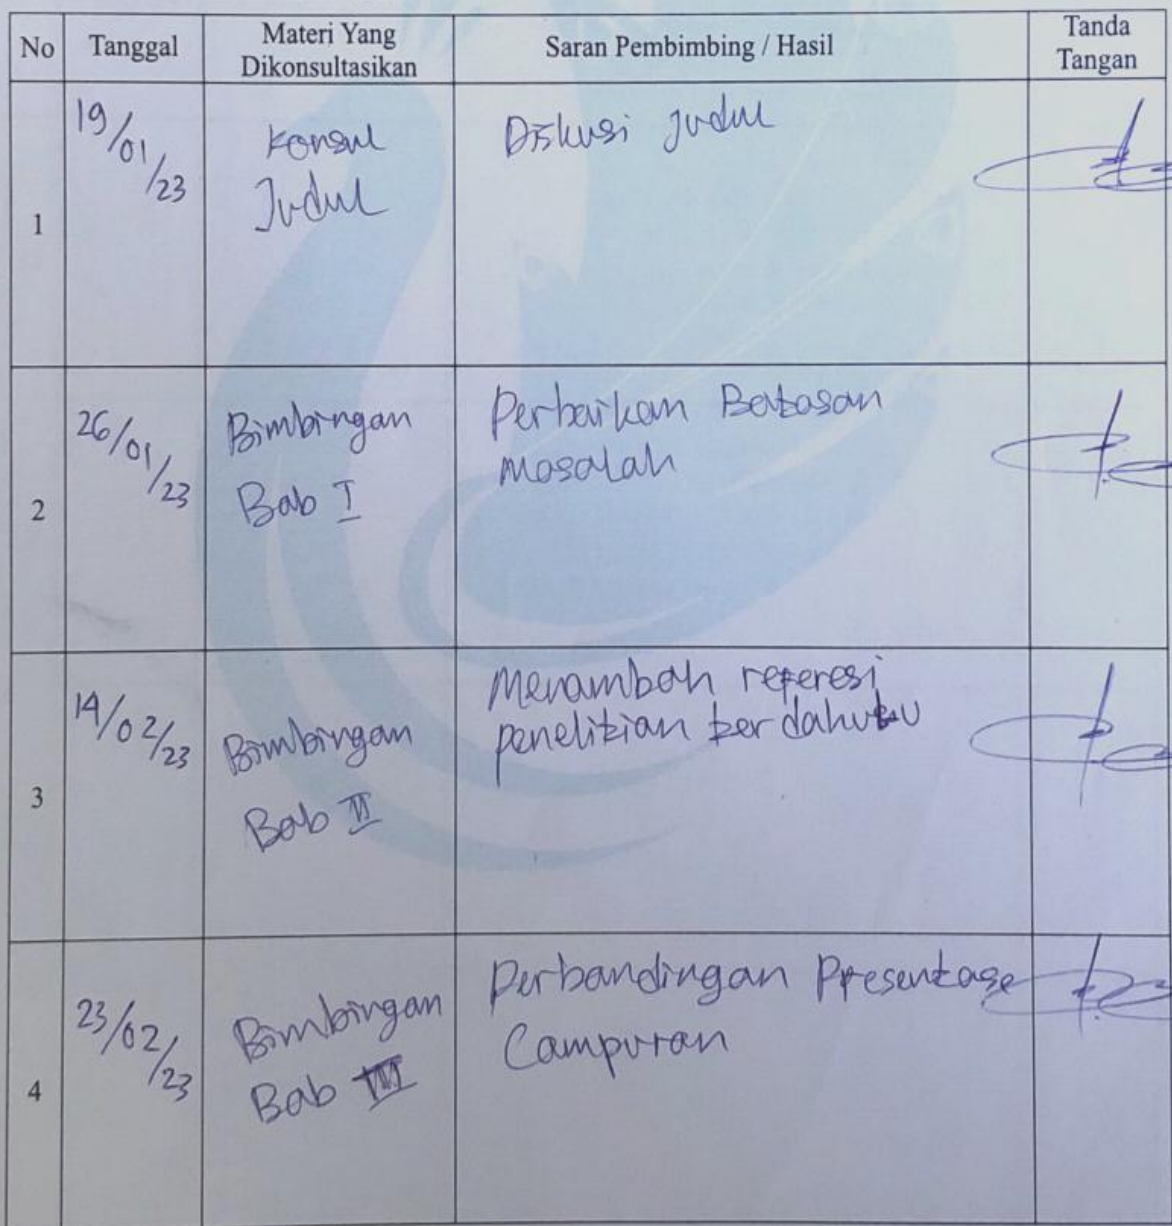 No Tanggal Materi Yang Dikonsultasikan Saran Pembimbing / Hasil Tanda Tangan
1
19/01/23
Konsul
Judul
Diskusi Judul
2
26/01/23
Bimbingan
Bab I
Perbaikan Batasan
masalah
3
14/02/23
Bimbingan
Bab II
Menambah referesi
penelitian terdahulu
4
23/02/23
Bimbingan
Bab III
Perbandingan Presentase
Campuran